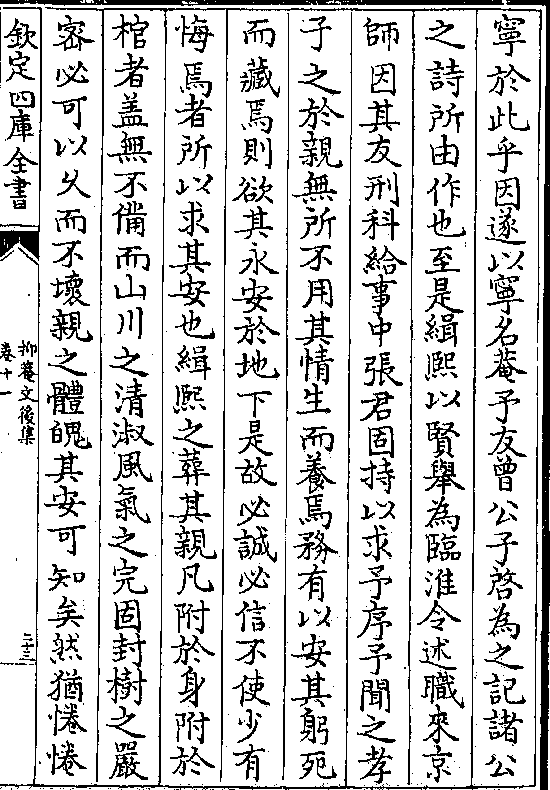 寧於此乎因遂以寧名菴予友曾公子啓為之記諸公
之詩所由作也至是緝熙以賢舉為臨淮令述職來京
師因其友刑科給事中張君固持以求予序予聞之孝
子之於親無所不用其情生而養焉務有以安其躬死
而藏焉則欲其永安於地下是故必誠必信不使少有
悔焉者所以求其安也緝熙之葬其親凡附於身附於
棺者盖無不備而山川之清淑風氣之完固封樹之嚴
宻必可以乆而不壞親之體魄其安可知矣然猶惓惓
欽定四庫全書
抑菴文後集
卷十一
二十三